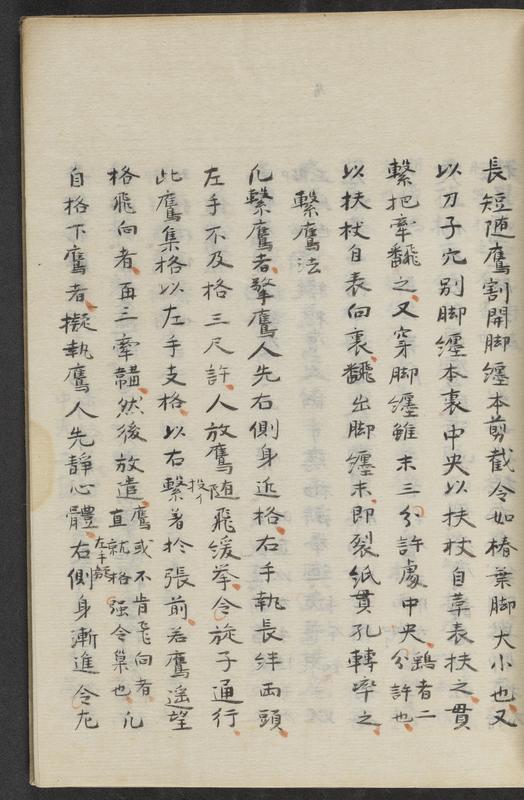 長短随鷹割開脚纏本剪截令如椿葉脚大小也又
以刀子穴別脚纏本裏中央以扶杖自革表扶之貫
繋把牽飜之又穿脚纏雖末三分許處中央鷂者二分許也
以扶杖自表向裏飜出脚纏末即裂紙貫孔轉率之
繋鷹法
凡繋鷹者擎鷹人先右側身近格右手執長絆両頭
左手不及格三尺許人放鷹随飛緩挙令旋子通行
此鷹集格以左手支格以右繋著於張前若鷹遥望
格飛向者再三牽韝然後放遣鷹或不肯飛向者直就格强令巢也凡
自格下鷹者擬執鷹人先静心體右側身漸進令左